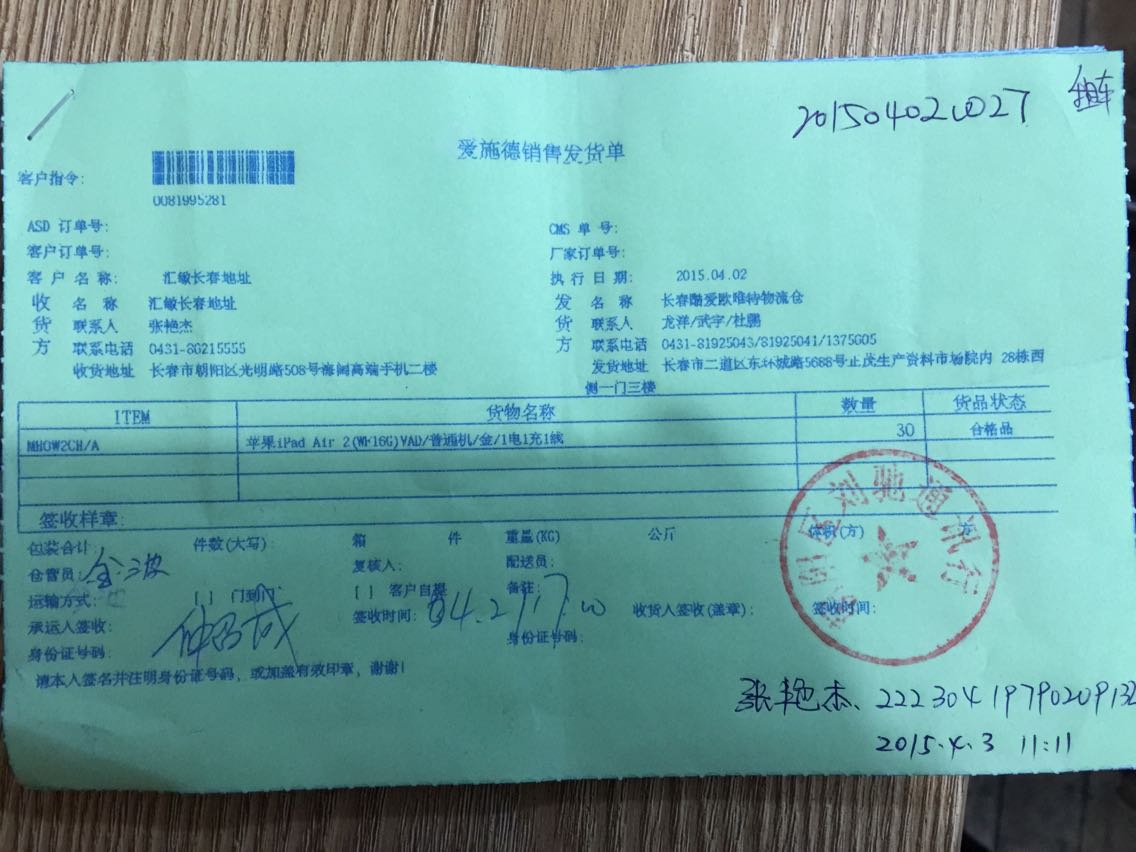 201504020027
爱施德销售发货单
客户指令:
0081995281
ASD 订单号: CMS 单 号:
客户订单号: 厂家订单号:
客 户 名 称: 汇敏长春地址 执 行 日 期: 2015.04.02
收 名 称 汇敏长春地址 发 名 称 长春酷爱欧唯特物流仓
货 联系人 张艳杰 货 联系人 龙洋/武宇/杜鹏
方 联系电话 0431-86215555 方 联系电话 0431-81925043/81925041/1375605
收货地址 长春市朝阳区光明路508号海阔高端手机二楼 发货地址 长春市二道区东环城路5688号止茂生产资料市场院内 28栋西
侧一门三楼
ITEM 货物名称 数量 货品状态
MH0W2CH/A 苹果iPad Air 2(WF16G)VAD/普通机/金/1电1充1线 30 合格品
签收样章:
包装合计: 件数(大写): 箱 件 重量(KG) 公斤 体积(方) 方
仓管员: 金波 复核人: 配送员:
运输方式: [ ] 门到门 [ ] 客户自提 备注:
承运人签收: 签收时间: 04.2/17.00 收货人签收(盖章): 签收时间:
身份证号码: 身份证号码:
请本人签名并注明身份证号码, 或加盖有效印章, 谢谢!
刘驰通讯行
张艳杰、22230419790209132
2015.4.3 11:11